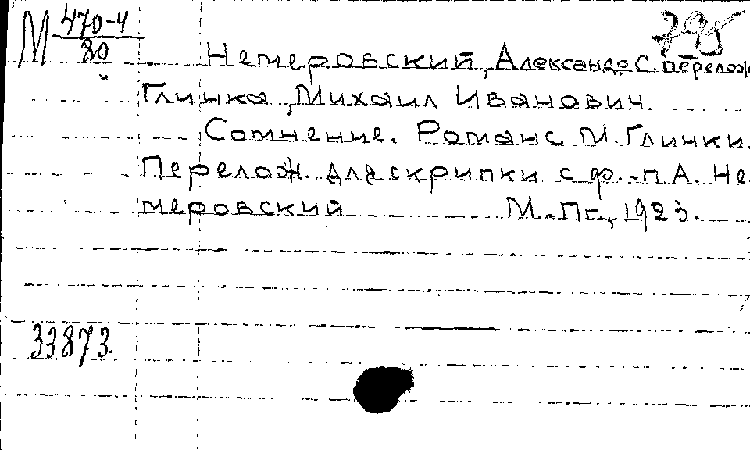 М 470-4
80
795
Немеровский, Александр С. перелож
Глинка, Михаил Иванович.
Сомнение. Романс М. Глинки.
Перелож. для скрипки с ф.-п. А. Не
меровский М.-Пг., 1923.
33873